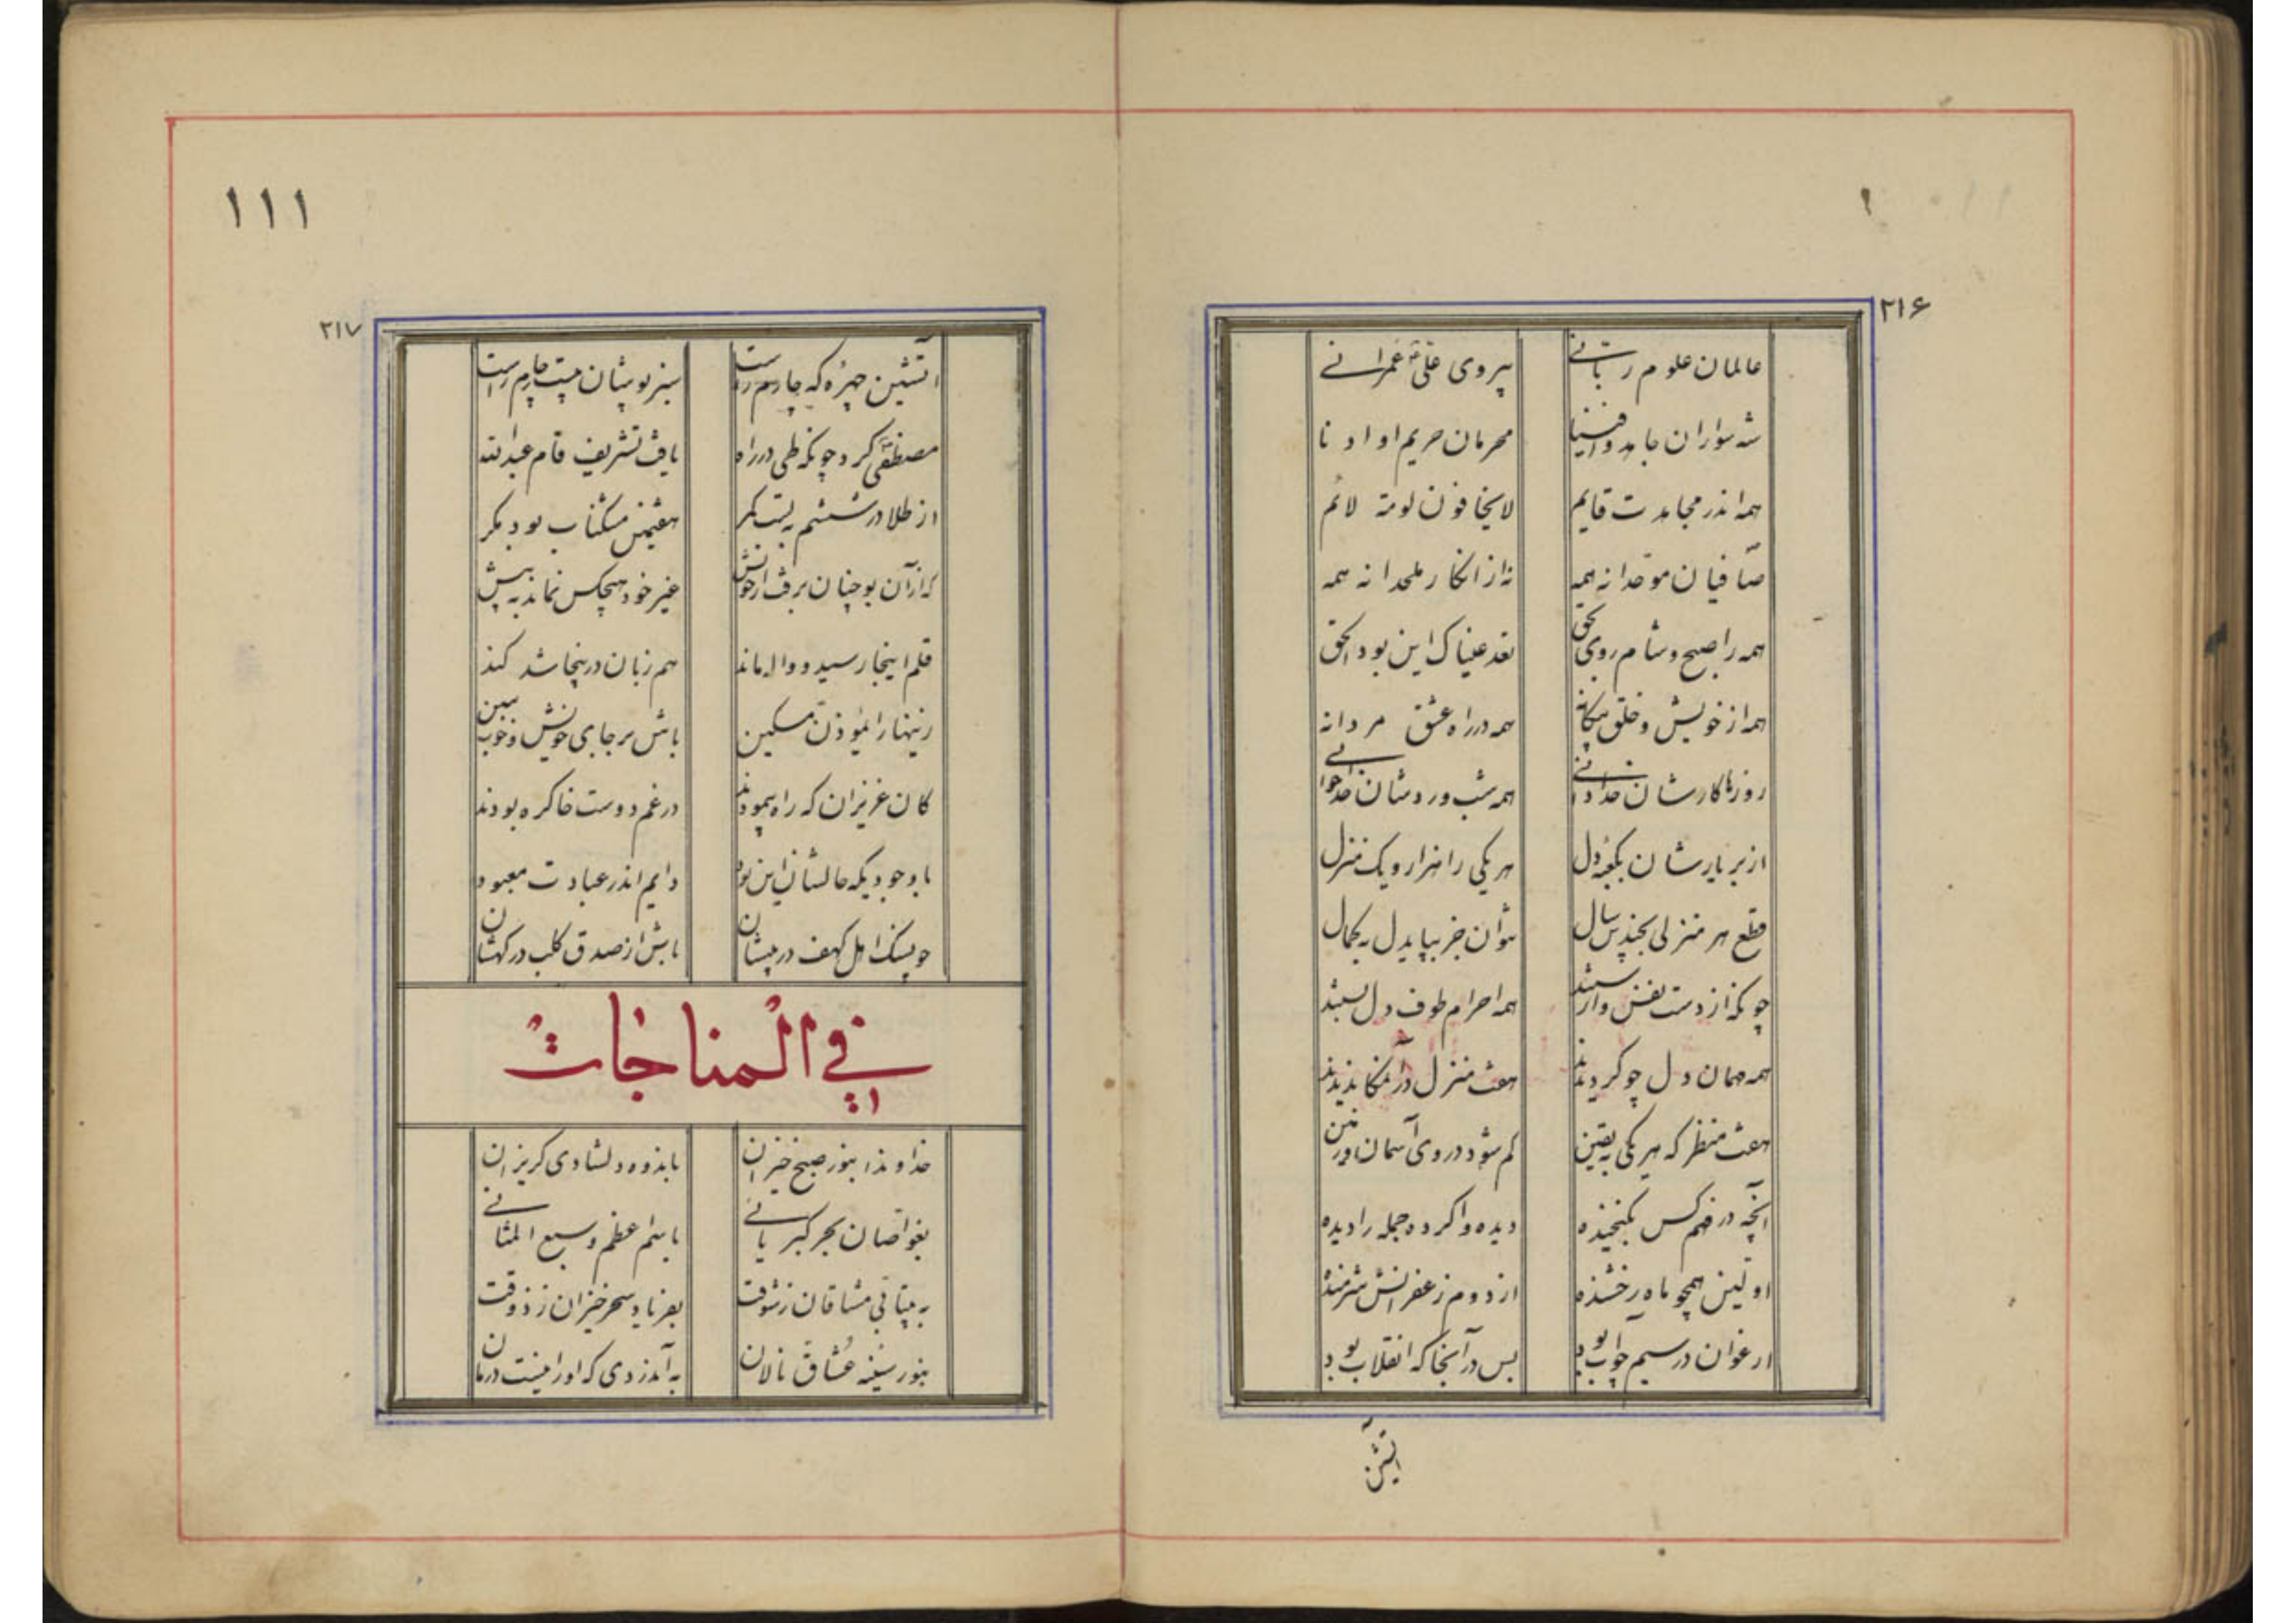 ۱۱۱
۲۱۶
عالمان علوم ربانی پیروی علی عمرانی
شه سواران جاهدوا فینا محرمان حریم او ادنا
همه اندر مجاهدت قایم لایخافون لومة لائم
صافیان موحدانه همه نه از انکار ملحدانه همه
همه را صبح و شام روی بحق نعبد ایاک این بود الحق
همه از خویش و خلق بیگانه همه در راه عشق مردانه
روزها کارشان خدا دانی همه شب وردشان خدا خوانی
از بر یارشان بکعبه دل هر یکی را هزار و یک منزل
قطع هر منزلی بچندین سال نتوان جز بپای دل بکمال
چونکه از دست نفس وارستند همه احرام طوف دل بستند
همه مهمان دل چو گردیدند هفت منزل در آن مکان دیدند
هفت منظر که هر یکی به یقین گم شود در وی آسمان و زمین
آنچه در فهم کس نگنجیده دیده وا کرده جمله را دیده
اولین همچو ماه رخشنده از دوم زعفرانش شرمنده
ارغوان در سیم چو آب بود بس در آنجا که انقلاب بود
آتشین
۲۱۷
آتشین چهره که چارم راست سبزپوشان پست چارم راست
مصطفی کرد چونکه طی در راه یافت تشریف قام عبدالله
از طلا در ششم ببست کمر هفتمین مشکناب بود مگر
که از آن بو چنان برفت از خویش غیر خود هیچکس نماند به پیش
قلم اینجا رسید و واله ماند هم زبان در اینجا شد کند
زینهار ای مؤذن مسکین باش بر جای خویش و خوب ببین
کان عزیزان که راه پیمودند در غم دوست خاک ره بودند
با وجودیکه حالشان این بود دایم اندر عبادت معبود
چو سگ اهل کهف در پیشان باش از صدق کلب درگهشان
فی المناجات
خداوندا بنور صبح خیزان باندوه دلشادی گریزان
بغواصان بحر کبریائی باسم اعظم و سبع المثانی
به بیتابی مشتاقان ز شوقت بفریاد سحرخیزان ز ذوقت
بنور سینه عشاق نالان به آندردی که او را نیست درمان